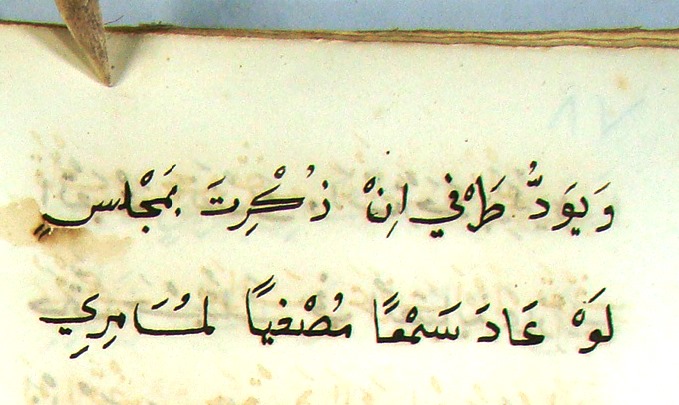 وَيَوَدُّ طَرْفي اِنْ ذُكْرِتَ بمَجْلسٍ
لَوْ عَادَ سَمْعًا مُصْغيًا لمُسَامِرِي